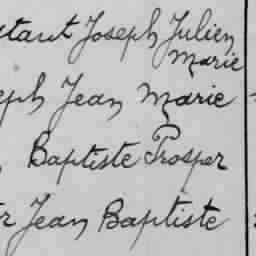 stant Joseph Julien
Marie
eph Jean Marie
Baptiste Prosper
r Jean Baptiste